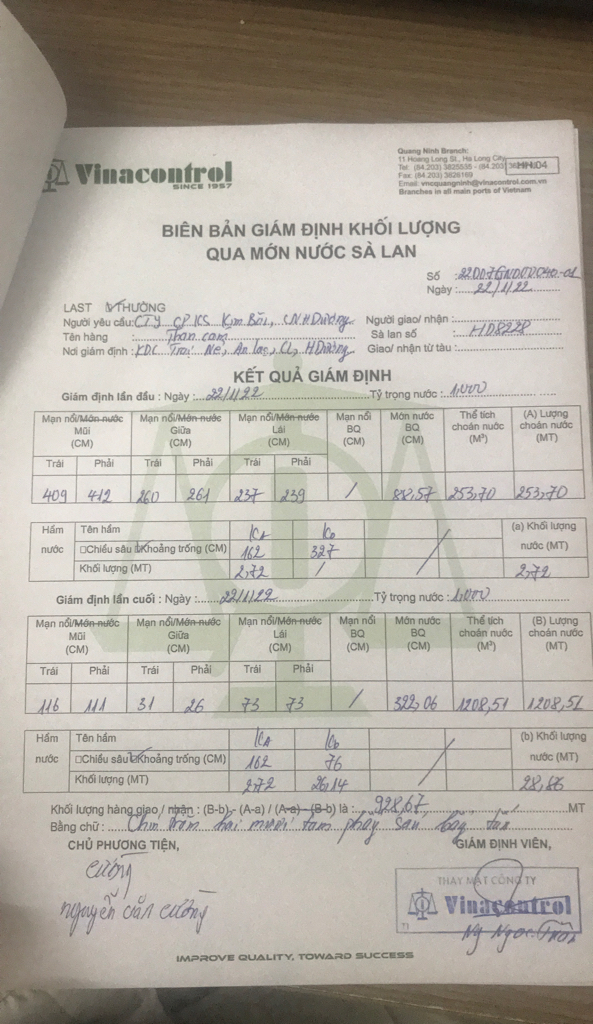 Vinacontrol
SINCE 1957
Quang Ninh Branch:
11 Hoang Long St., Ha Long City
Tel: (84.203) 3835535 - (84.203)
HH L04
Fax: (84.203) 3826169
Email: vncquangninh@vinacontrol.com.vn
Branches in all main ports of Vietnam
BIÊN BẢN GIÁM ĐỊNH KHỐI LƯỢNG
QUA MỚN NƯỚC SÀ LAN
Số :
Ngày : 22/1/22
LAST THƯỜNG
Người yêu cầu: CTY CP KS Kim Bôi, CN H Dương Người giao/ nhận :
Tên hàng : Than cám Sà lan số : HD8228
Nơi giám định : KDC An lạc, CL, H Dương Giao/ nhận từ tàu :
KẾT QUẢ GIÁM ĐỊNH
Giám định lần đầu : Ngày : 22/1/22 Tỷ trọng nước : 1,000
Mạn nổi/Mớn nước Mũi (CM) Mạn nổi/Mớn nước Giữa (CM) Mạn nổi/Mớn nước Lái (CM) Mạn nổi BQ (CM) Mớn nước BQ (CM) Thể tích choán nước (M³) (A) Lượng choán nước (MT)
Trái Phải Trái Phải Trái Phải
409 412 260 261 237 239 / 88,57 253,70 253,70
Hầm nước Tên hầm (a) Khối lượng nước (MT)
Chiều sâu Khoảng trống (CM) 162 327
Khối lượng (MT) 2,72 / 2,72
Giám định lần cuối : Ngày : 22/1/22 Tỷ trọng nước : 1,000
Mạn nổi/Mớn nước Mũi (CM) Mạn nổi/Mớn nước Giữa (CM) Mạn nổi/Mớn nước Lái (CM) Mạn nổi BQ (CM) Mớn nước BQ (CM) Thể tích choán nước (M³) (B) Lượng choán nước (MT)
Trái Phải Trái Phải Trái Phải
116 111 31 26 73 73 / 322,06 1208,51 1208,51
Hầm nước Tên hầm (b) Khối lượng nước (MT)
Chiều sâu Khoảng trống (CM) 162 76
Khối lượng (MT) 2,72 26,14 28,86
Khối lượng hàng giao / nhận : (B-b) - (A-a) / (A-a) - (B-b) là : 928,67 MT
Bằng chữ : Chín trăm hai mươi tám phẩy sáu bảy tấn
CHỦ PHƯƠNG TIỆN, GIÁM ĐỊNH VIÊN,
Cường
nguyễn văn cường
THAY MẶT CÔNG TY
Vinacontrol
Ng Ngọc
IMPROVE QUALITY, TOWARD SUCCESS